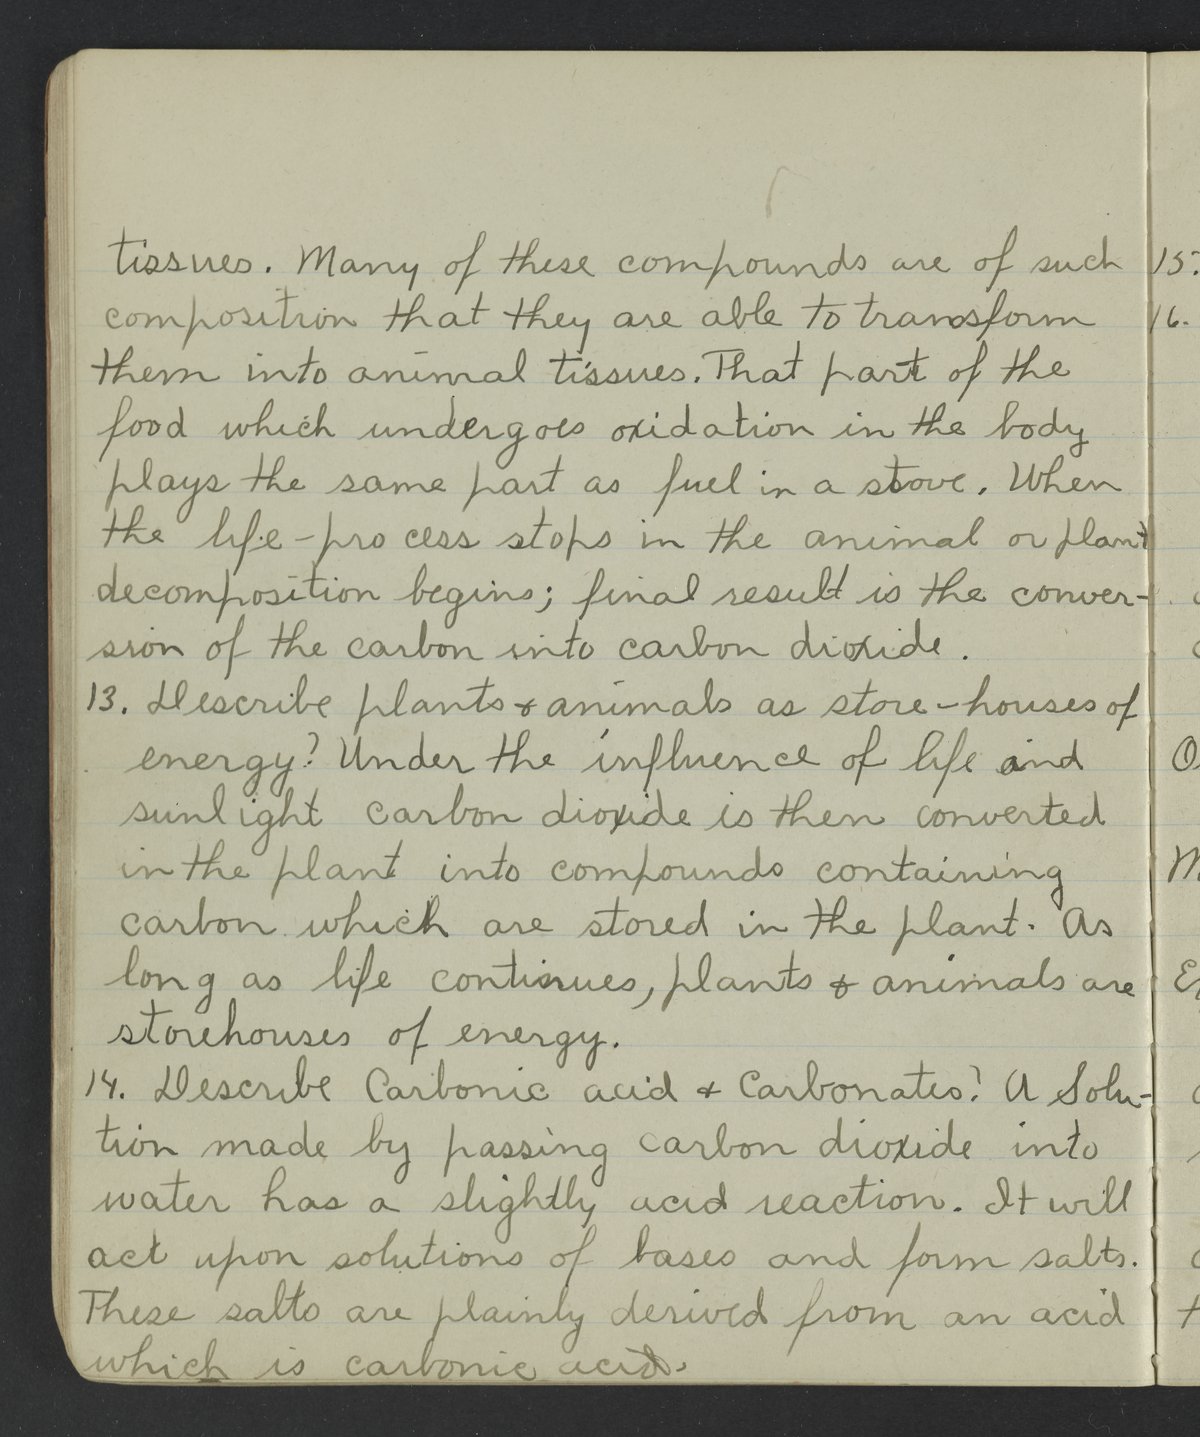 tissues. Many of these compounds are of such
composition that they are able to transform
them into animal tissues. That part of the
food which undergoes oxidation in the body
plays the same part as fuel in a stove. When
the life-process stops in the animal or plant
decomposition begins; final result is the conver-
sion of the carbon into carbon dioxide.
13. Describe plants & animals as store-houses of
energy? Under the influence of life and
sunlight carbon dioxide is then converted
in the plant into compounds containing
carbon which are stored in the plant. As
long as life continues, plants & animals are
storehouses of energy.
14. Describe Carbonic acid & Carbonates? A Solu-
tion made by passing carbon dioxide into
water has a slightly acid reaction. It will
act upon solutions of bases and form salts.
These salts are plainly derived from an acid
which is carbonic acid.
15.
16.